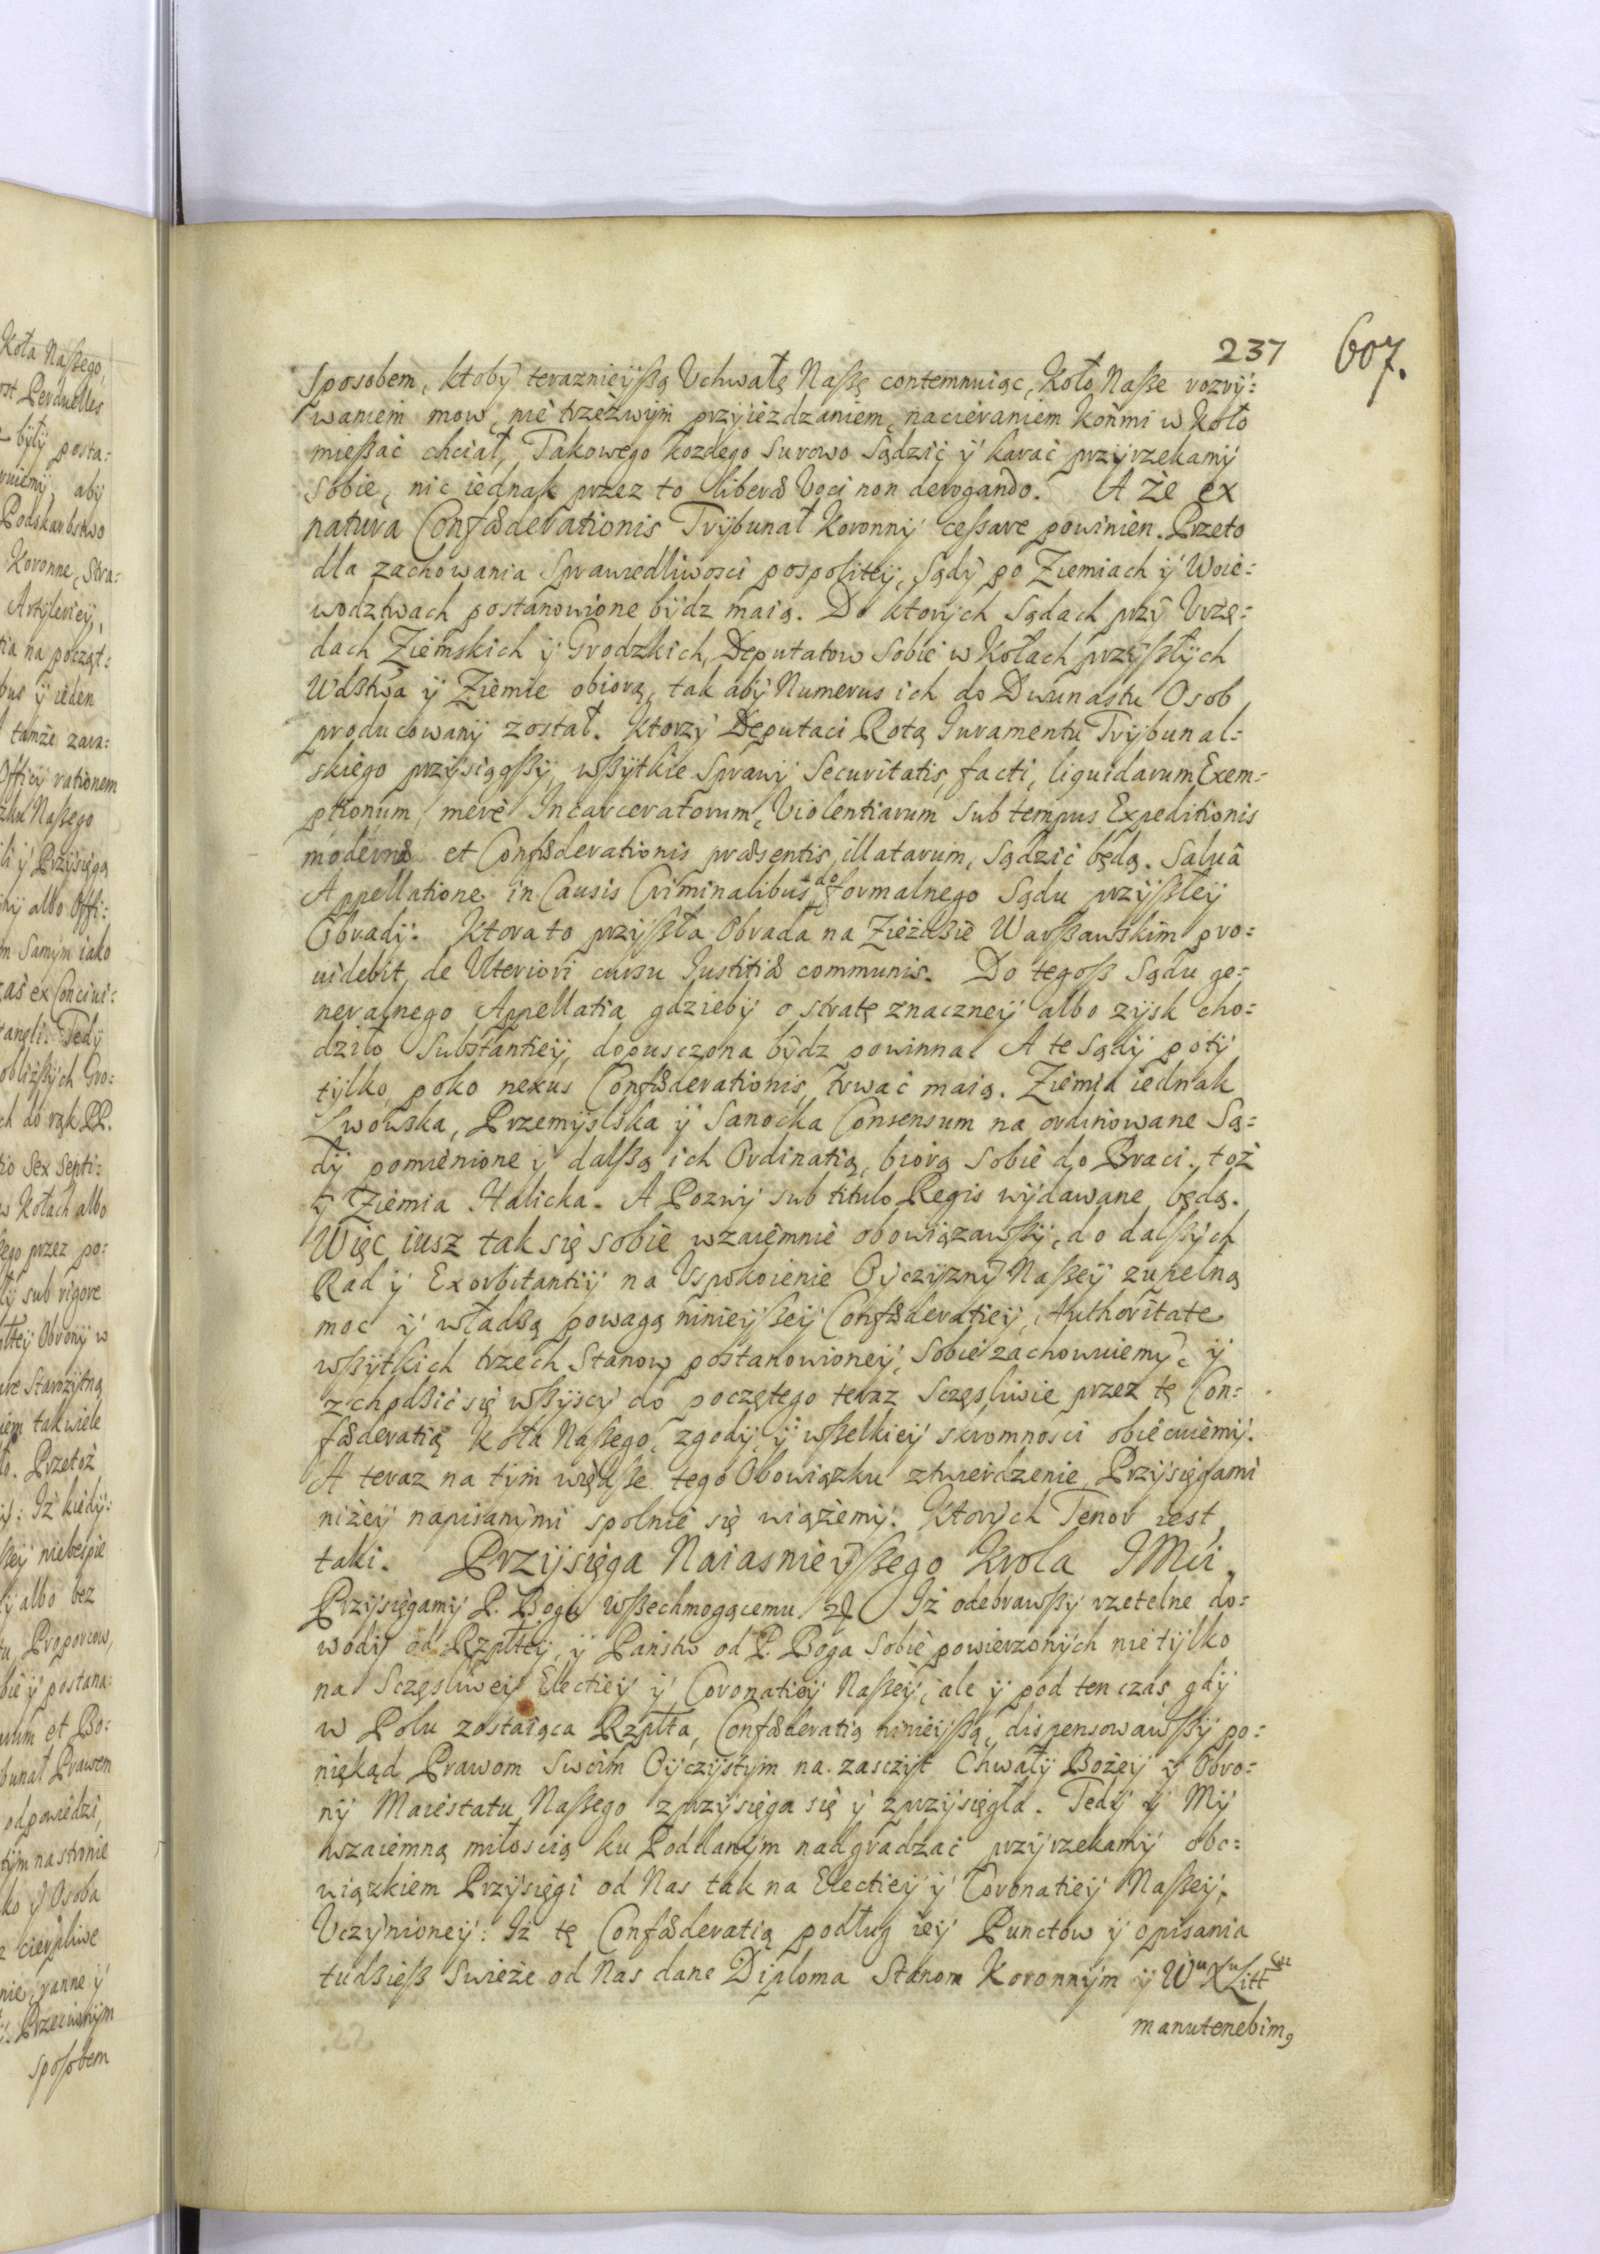 237 607.
Sposobem, ktoby teraznieyßą Uchwałę Naßę contemnuiąc, Koło Naße rozry:
waniem mow, nie trzeżwym przyieżdzaniem, nacieraniem końmi w Koło
mießać chciał, Takowego kozdego surowo sądzić y karać przyrzekamy
sobie, nic iednak przez to liberæ Voci non derogando. A że ex
natura Confæderationis Trybunał Koronny ceßare powinien. Przeto
dla zachowania Sprawiedliwosci pospolitey, Sądy po Ziemiach y Woie:
wodztwach postanowione bydz maią. Do ktorych Sądach przy Urzę:
dach Ziemskich y Grodzkich, Deputatow sobie w Kołach przyßłych
Wdztwa y Ziemie obiorą, tak aby Numerus ich do Dwunastu Osob
producowany został. Ktorzy Deputaci Rotą Iuramentu Trybunal:
skiego przysiągßy, wßytkie Sprawy Securitatis, facti, liquidarum Exem:
ptionum merè Incarceratorum, Violentiarum sub tempus Expeditionis
modernæ et Confæderationis præsentis, illatarum, Sądzić będą. Salvâ
Appellatione in Causis Criminalibus do formalnego Sądu przyßłey
Obrady. Ktora to przyßła Obrada na Zieździe Warßawskim pro:
videbit, de Ulteriori cursu Iustitiæ communis. Do tegoß Sądu ge:
neralnego Appellatia gdzieby o stratę znaczney albo zysk cho:
dziło Substantiey, dopusczona bydz powinna. A te Sądy poty
tylko poko nexus Confæderationis, trwać maią. Ziemia iednak
Lwowska, Przemyslska y Sanocka Consensum na ordinowane Są:
dy pomienione y dalßą ich Ordinatią, biorą sobie do Braci. toż
y Ziemia Halicka. A Pozwy sub titulo Regis wydawane będą.
Więc iusz tak się sobie wzaiemnie obowiązawßy, do dalßych
Rad y Exorbitantiy na Uspokoienie Oyczyzny Naßey zupełną
moc y władzą powagą ninieyßey Confæderatiey, Authoritate
wßytkich trzech Stanow postanowioney, sobie zachowuiemy, y
zchodzić się wßyscy do poczętego teraz Sczęsliwie przez tę Con:
fæderatią Koła Naßego, zgody, y wßelkiey skromnosci obiecuiemy.
A teraz na tym więtße tego Obowiązku ztwierdzenie Przysięgami
niżey napisanymi spolnie się wiążemy. Ktorych Tenor iest
taki. Przysięga Naiasnieyßego Krola IMci.
Przysięgamy P. Bogu Wßechmogącemu Iż odebrawßy rzetelne do:
wody od Rzpltey, y Państw od P. Boga sobie powierzonych nie tylko
na Sczęsliwey Electiey y Coronatiey Naßey, ale y pod ten czas gdy
w Polu zostaiąca Rzplta, Confæderatią ninieyßą, dispensowawßy po:
niekąd Prawom Swoim Oyczystym na zasczyt Chwały Bożey y Obro:
ny Maiestatu Naßego zprzysięga się y zprzysięgła. Tedy y My
wzaiemną miłoscią ku Poddanym nadgradzać przyrzekamy obo:
wiązkiem Przysięgi od Nas tak na Electiey y Coronatiey Naßey,
Uczynioney: Iż tę Confæderatią podług iey Punctow y opisania
tudzieß Swieże od Nas dane Diploma Stanom Koronnym y Wu Xu Litt
manutenebimꝰ